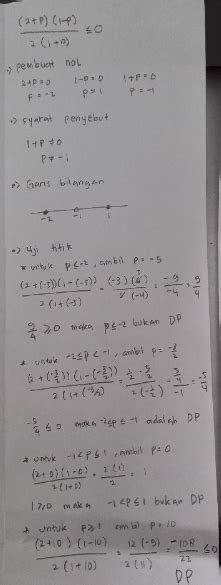 (2+p)(1-p) / 2(1+p) ≤ 0
•) pembuat nol
2+p=0 1-p=0 1+p=0
p=-2 p=1 p=-1
•) syarat penyebut
1+p ≠ 0
p ≠ -1
•) Garis bilangan
-2 -1 1
•) Uji titik
* untuk p≤-2, ambil p = -5
(2+(-5))(1-(-5)) / 2(1+(-5)) = (-3)(6) / 2(-4) = -9/-4 = 9/4
9/4 ≥ 0 maka p≤-2 bukan DP
* untuk -2≤p<-1, ambil p = -3/2
(2+(-3/2))(1-(-3/2)) / 2(1+(-3/2)) = 1/2 · 5/2 / 2(-1/2) = 5/4 / -1 = -5/4
-5/4 ≤ 0 maka -2≤p≤-1 adalah DP
* untuk -1<p≤1, ambil p=0
(2+0)(1-0) / 2(1+0) = 2(1) / 2 = 1
1≥0 maka -1<p≤1 bukan DP
* untuk p≥1 ambil p=10
(2+10)(1-10) / 2(1+10) = 12(-9) / 2(11) = -108 / 22 ≤ 0
DP